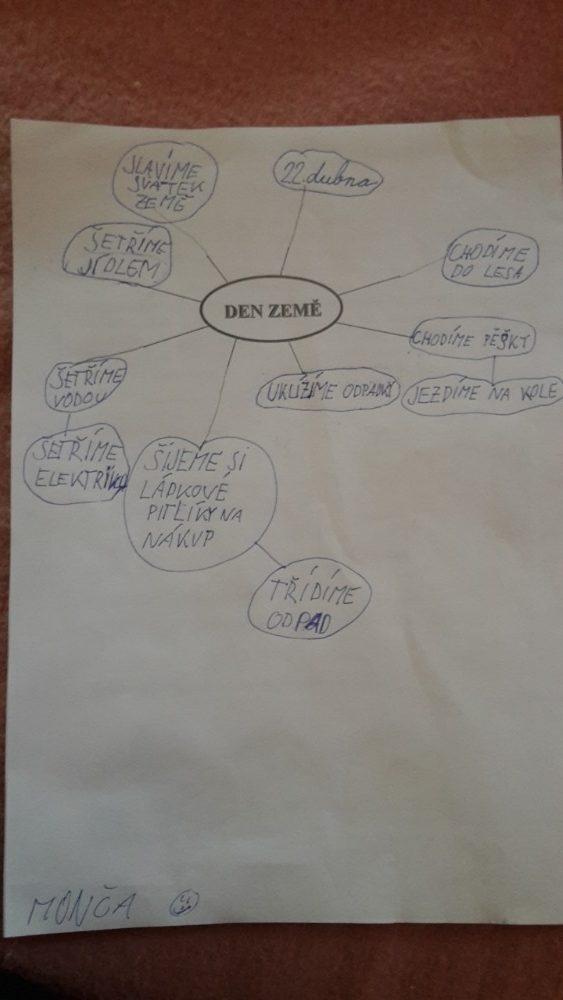 SLAVÍME
SVÁTEK
ZEMĚ
22. dubna
ŠETŘÍME
JÍDLEM
CHODÍME
DO LESA
DEN ZEMĚ
CHODÍME PĚŠKY
ŠETŘÍME
VODOU
UKLÍZÍME ODPADKY
JEZDÍME NA KOLE
ŠETŘÍME
ELEKTRIKU
ŠIJEME SI
LÁDKOVÉ
PITLÍKY NA
NÁKUP
TŘÍDÍME
ODPAD
MONČA